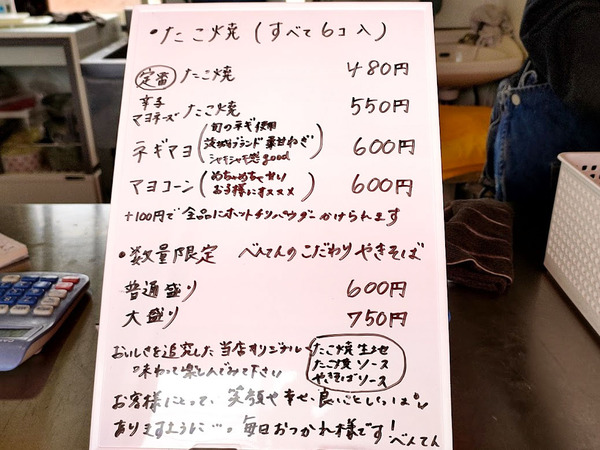 ・たこ焼（すべて6コ入）
定番 たこ焼 480円
辛子マヨネーズ たこ焼 550円
ネギマヨ（旬のネギ使用 茨城ブランド 葉甘ねぎ シャキシャキ感good） 600円
マヨコーン（めちゃめちゃせい お子様にオススメ） 600円
+100円で全品にホットチリパウダーかけられます
・数量限定 べんてんのこだわりやきそば
普通盛り 600円
大盛り 750円
おいしさを追究した当店オリジナル
味わって楽しんでみて下さい
たこ焼生地
たこ焼ソース
やきそばソース
お客様にとって、笑顔や幸せ、良いこといっぱい
ありますように…。毎日おつかれ様です！べんてん